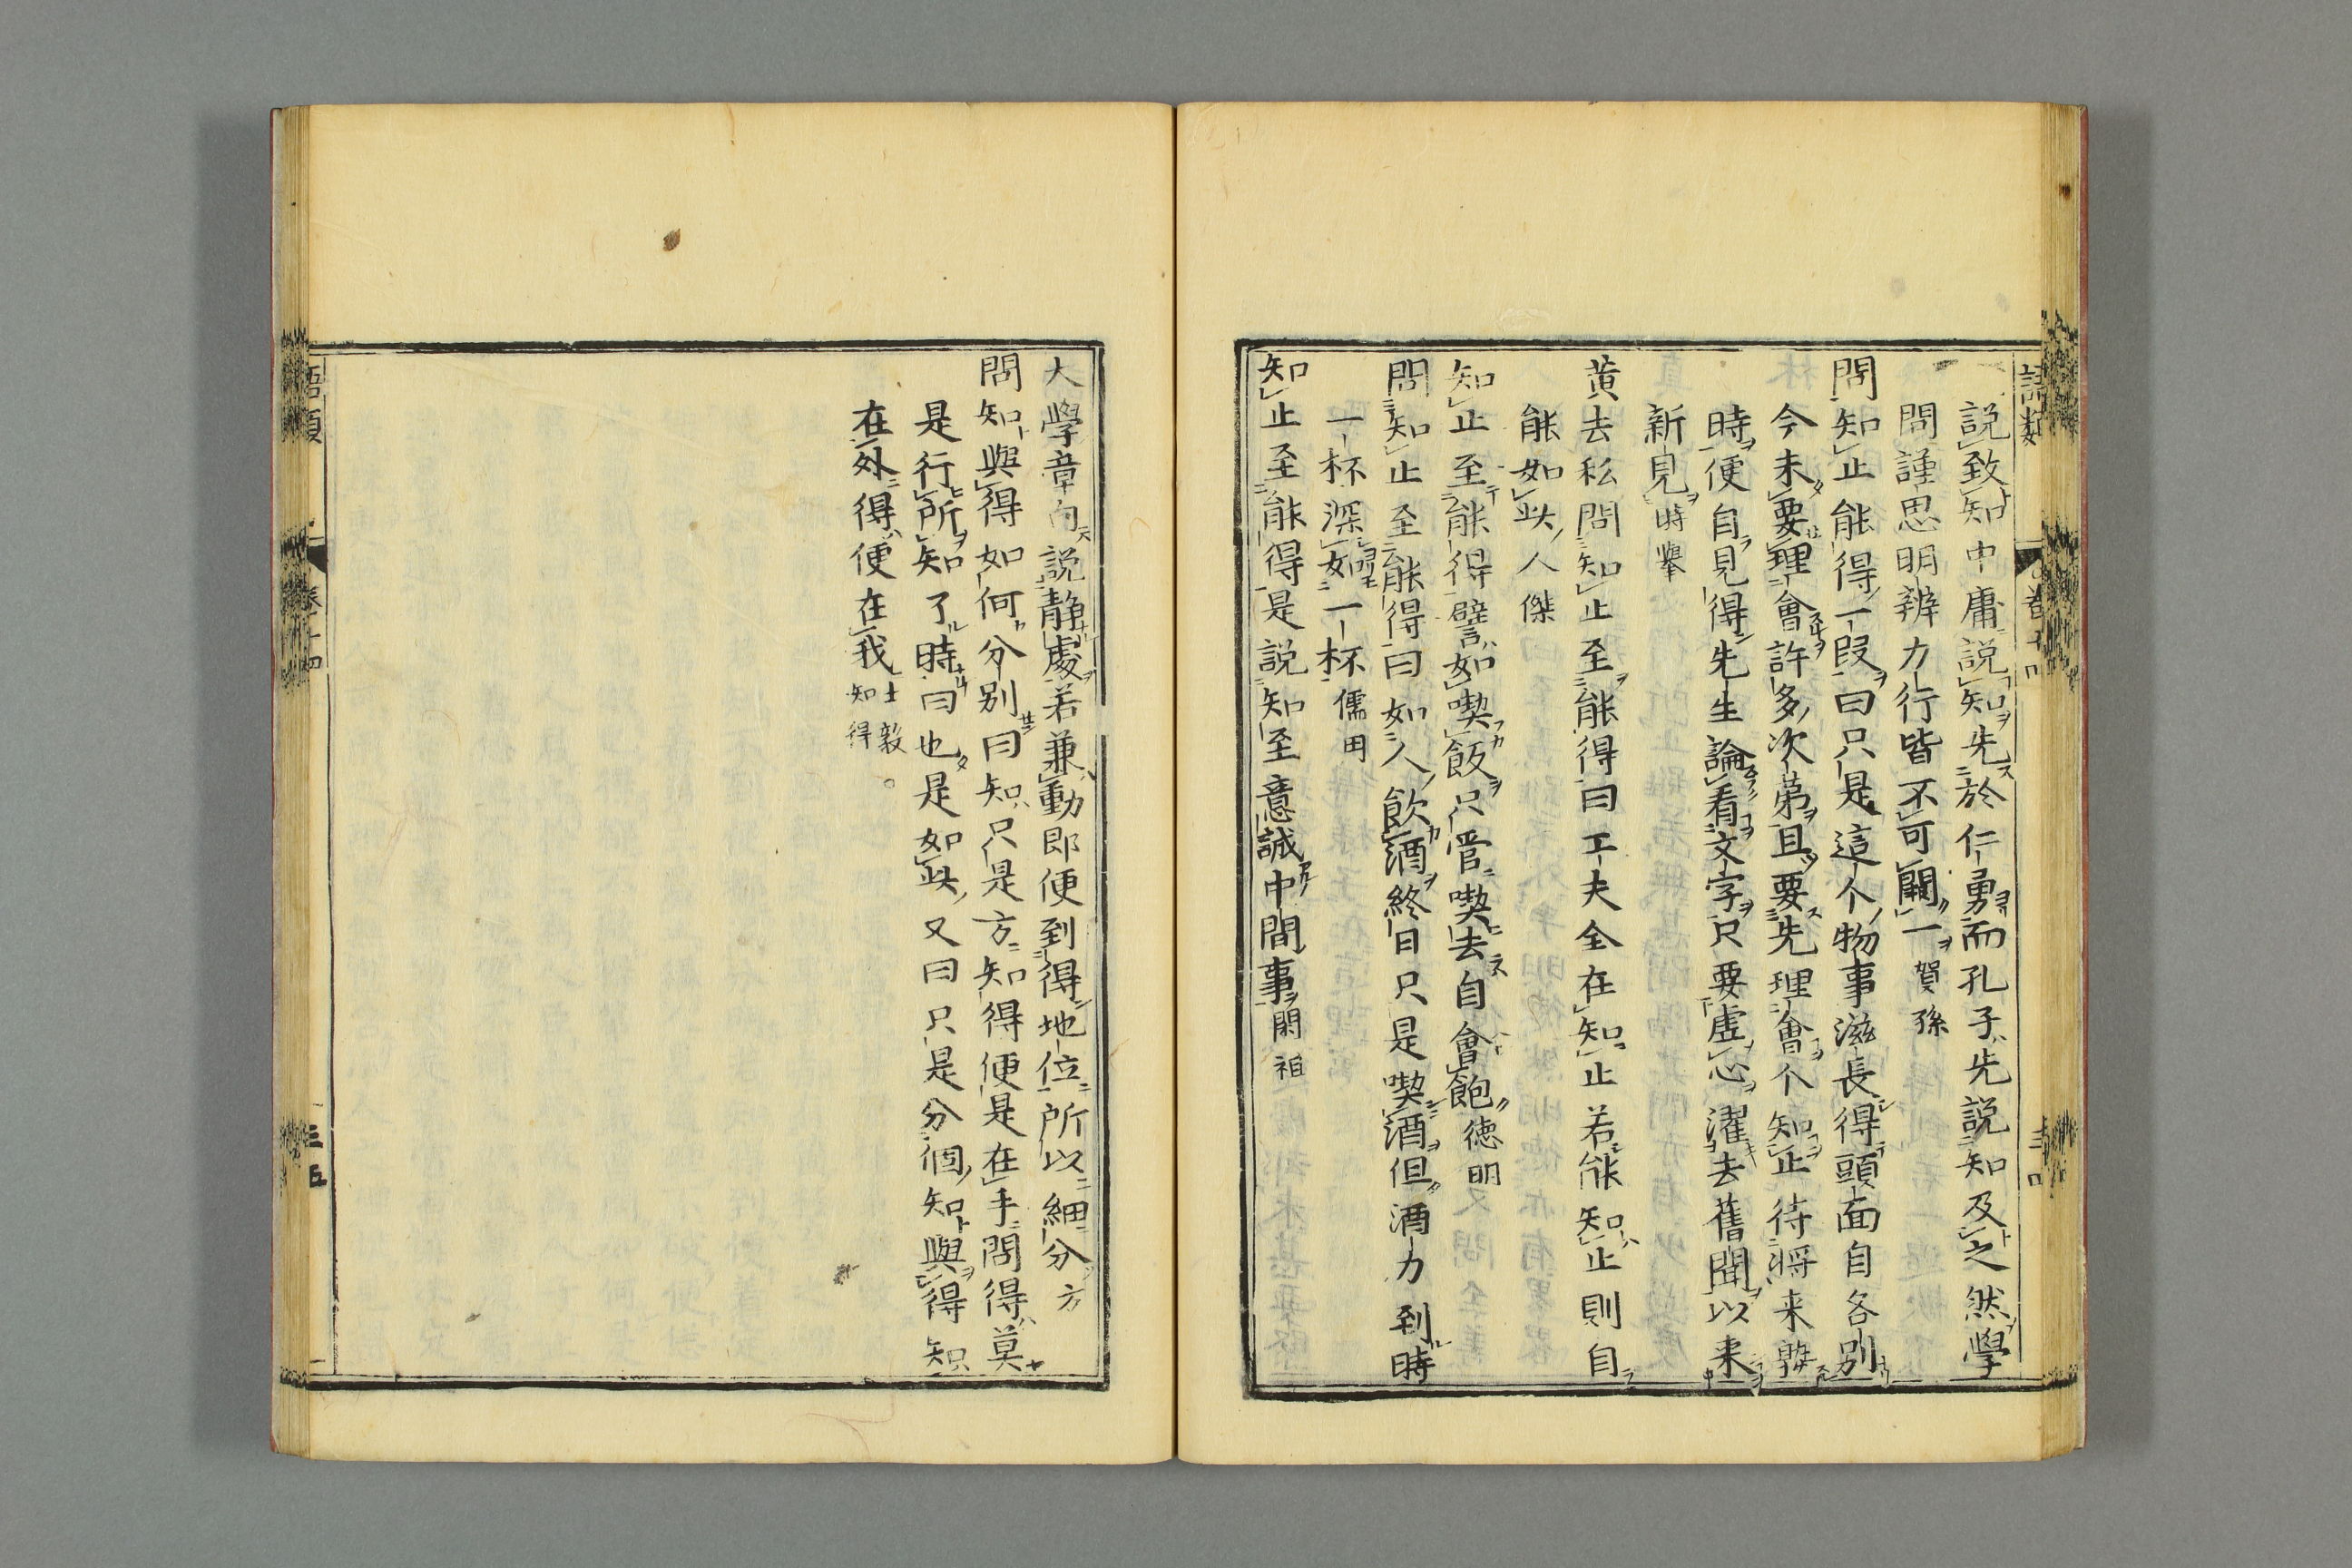 説致知中庸説知先於仁勇而孔子先説知及之然學
問謹思明辨力行皆不可闕一賀孫
問知止能得一段曰只是這个物事滋長得頭面自各別
今未要理會許多次第且要先理會个知止待將来熟
時便自見得先生論看文字只要虛心濯去舊聞以来
新見時擧
黄去私問知止至能得曰工夫全在知止若能知止則自
能如此人傑
知止至能得譬如喫飯只管喫去自會飽徳明
問知止至能得曰如人飲酒終日只是喫酒但酒力到時
一杯深如一杯儒用
知止至能得是説知至意誠中間事閎祖
大學章句説静處若兼動即便到得地位所以細分方
問知與得如何分別曰知只是方知得便是在手問得莫
是行所知了時曰也是如此又曰只是分個知與得知
在外得便在我士毅知得
語類
卷十四
三五